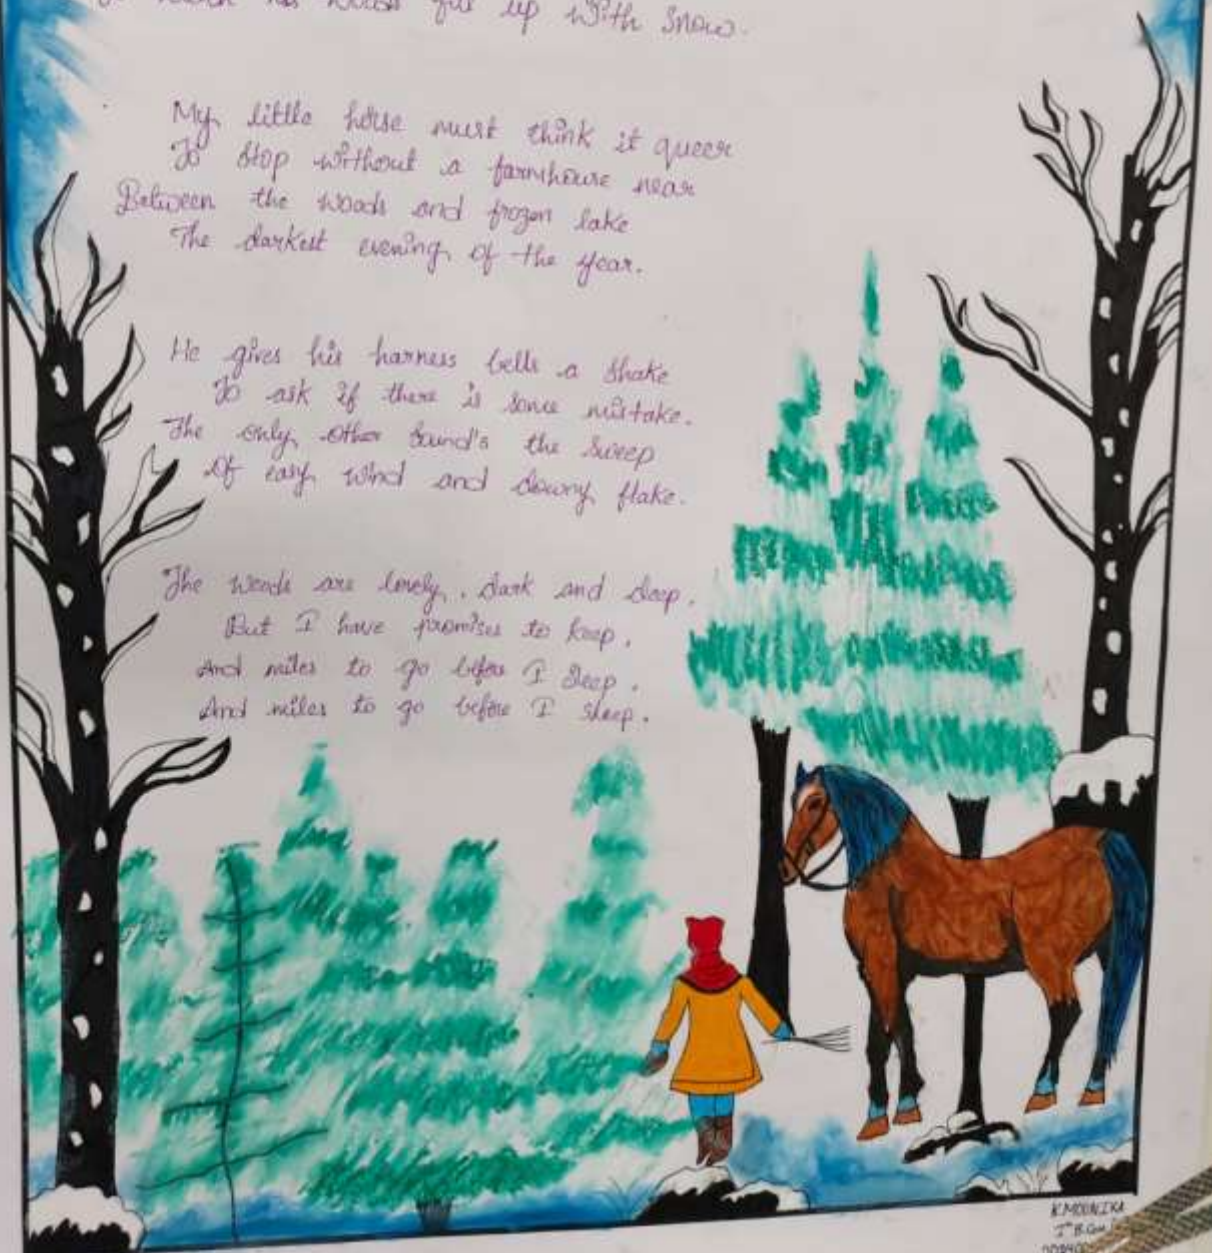 up with snow.
My little horse must think it queer
To stop without a farmhouse near
Between the woods and frozen lake
The darkest evening of the year.
He gives his harness bells a shake
To ask if there is some mistake.
The only other sound's the sweep
Of easy wind and downy flake.
The woods are lovely, dark and deep.
But I have promises to keep.
And miles to go before I sleep.
And miles to go before I sleep.